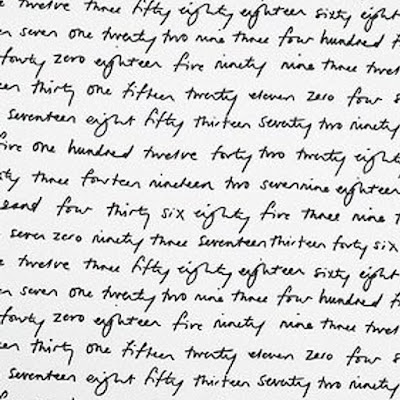 twelve three fifty eighty eighteen sixty eight
seven one twenty two nine three four hundred
forty zero eighteen five ninety nine three twel
een thirty one fifteen twenty eleven zero four s
seventeen eight fifty thirteen seventy two ninety
five one hundred twelve forty two twenty eighty
three fourteen nineteen two seven nine eighteen
sand four thirty six eighty five three nine
seven zero ninety three seventeen thirteen forty six
twelve three fifty eighty eighteen sixty eight
seven one twenty two nine three four hundred
forty zero eighteen five ninety nine three twel
een thirty one fifteen twenty eleven zero four s
seventeen eight fifty thirteen seventy two ninety